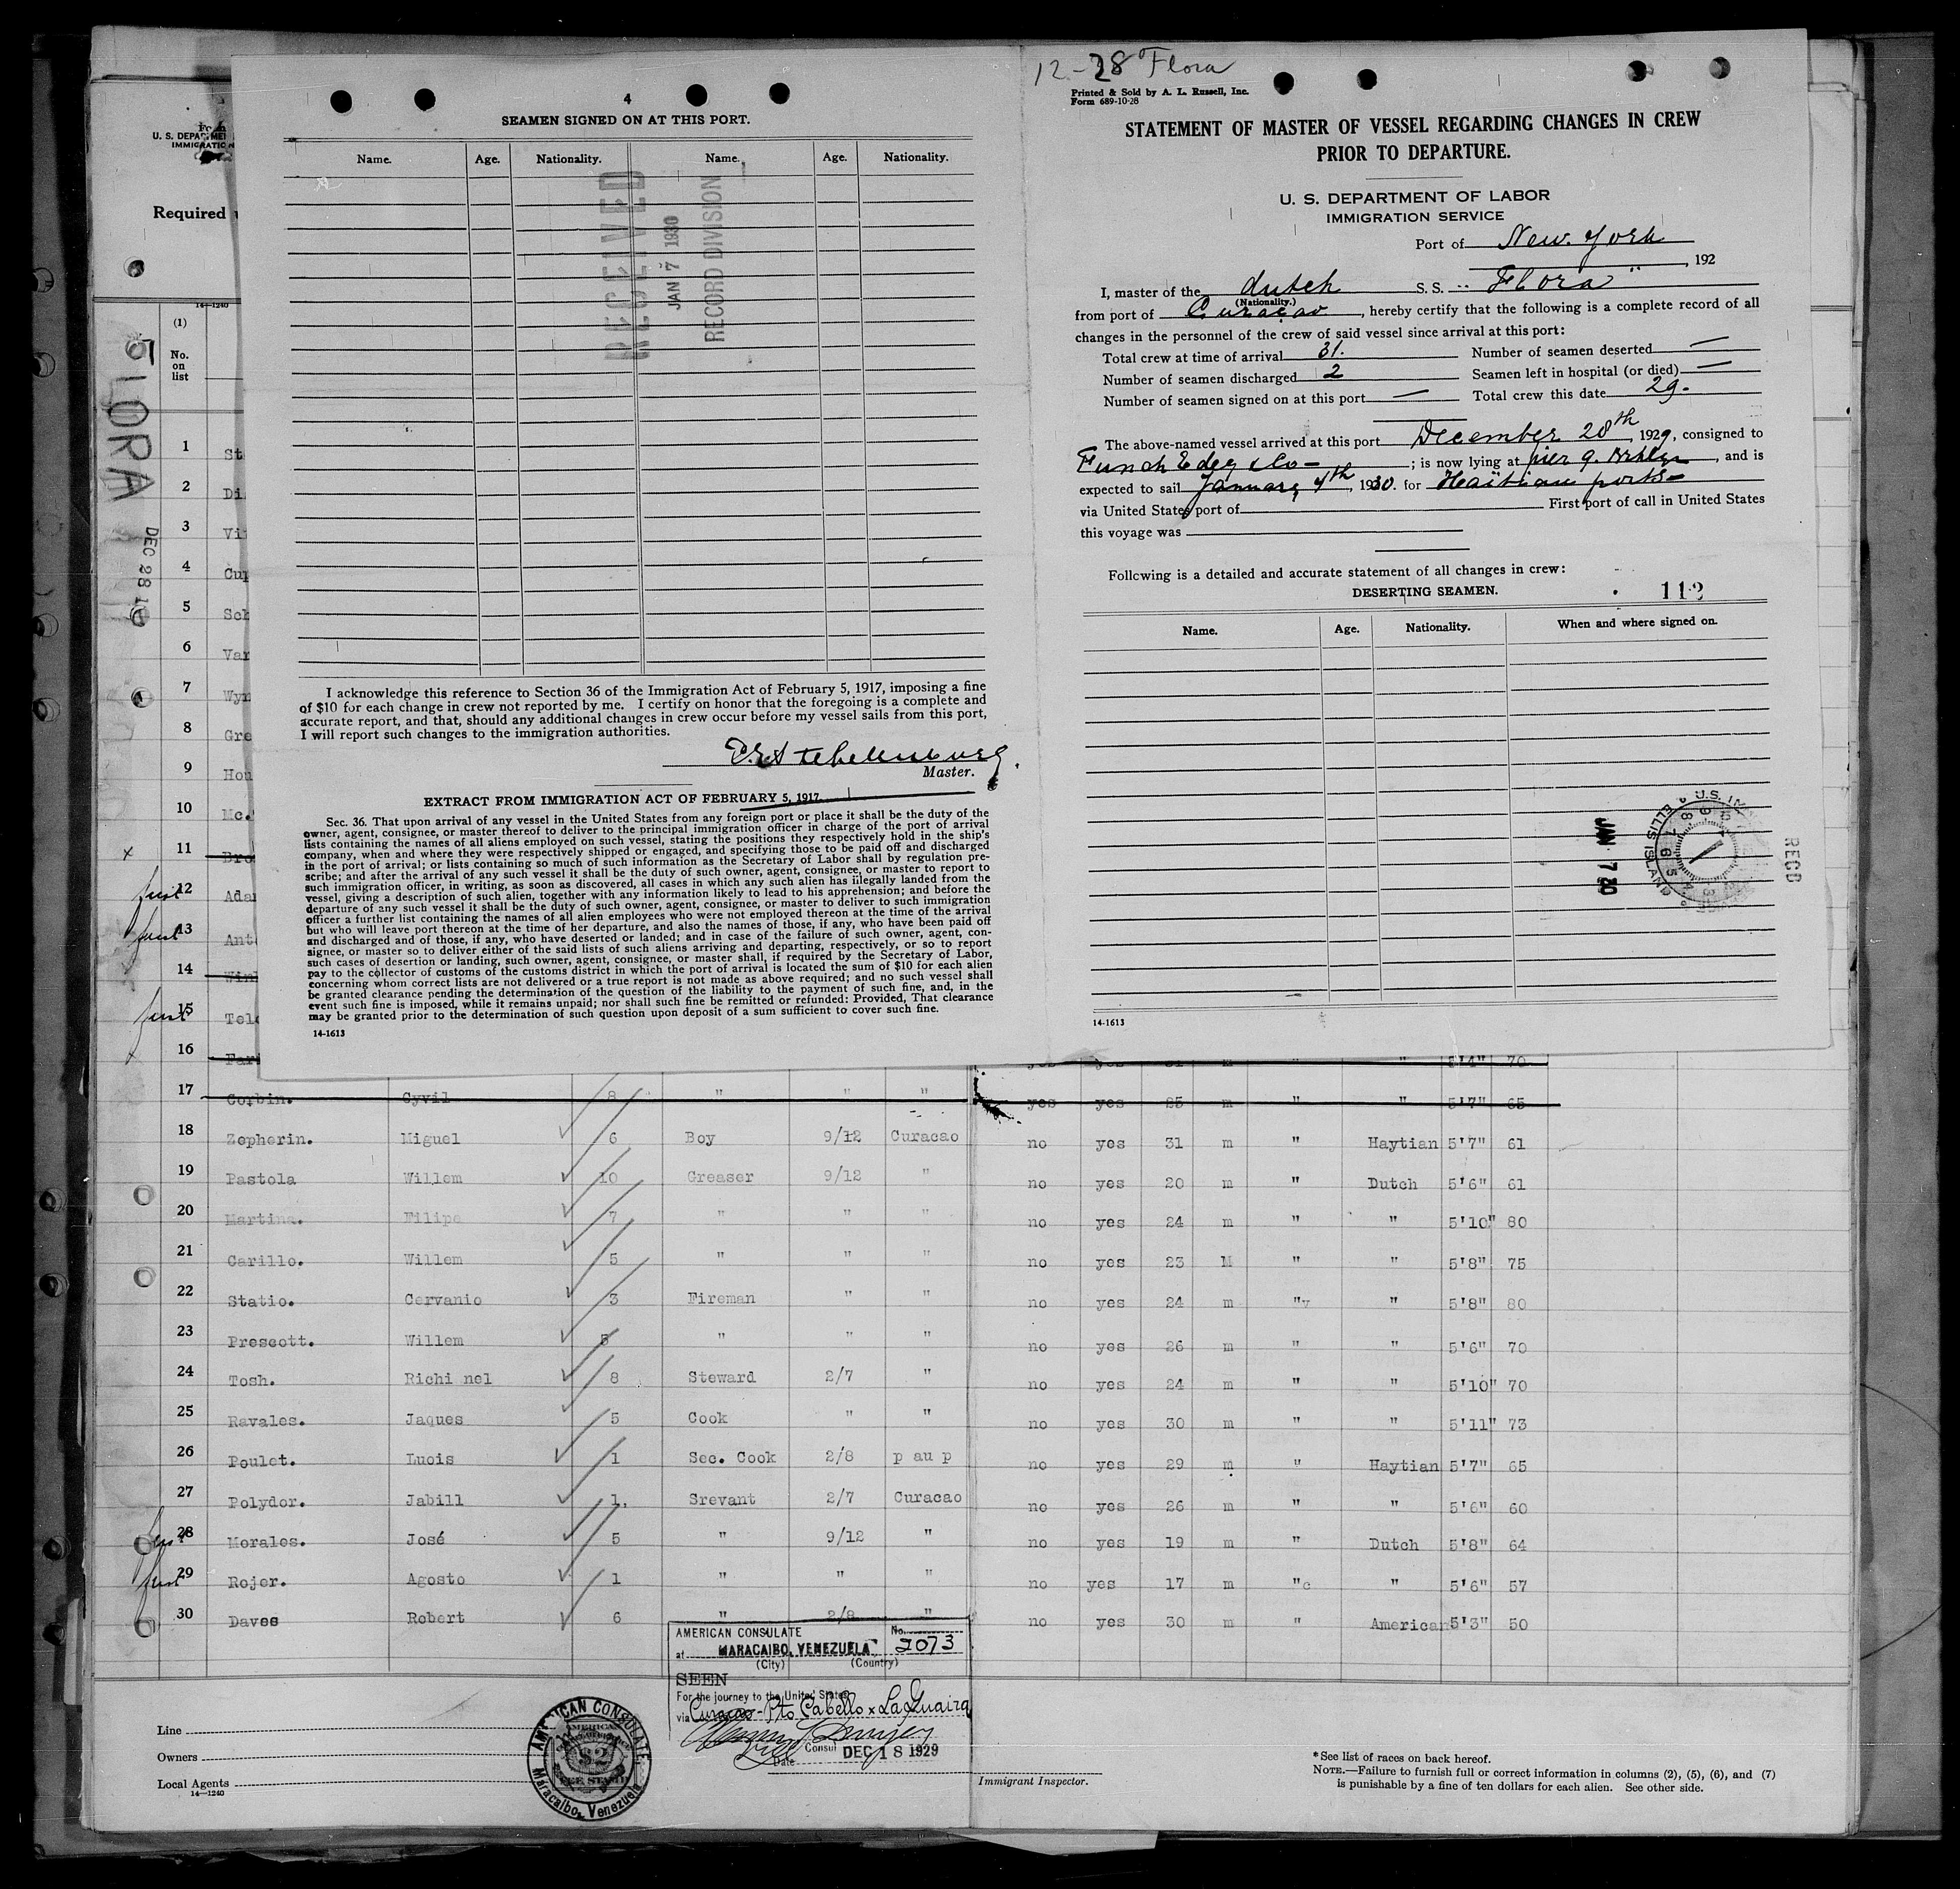 4
SEAMEN SIGNED ON AT THIS PORT.
Name. Age. Nationality. Name. Age. Nationality.
RECEIVED
JAN 7 1930
RECORD DIVISION
I acknowledge this reference to Section 36 of the Immigration Act of February 5, 1917, imposing a fine
of $10 for each change in crew not reported by me. I certify on honor that the foregoing is a complete and
accurate report, and that, should any additional changes in crew occur before my vessel sails from this port,
I will report such changes to the immigration authorities.
Master.
EXTRACT FROM IMMIGRATION ACT OF FEBRUARY 5, 1917.
Sec. 36. That upon arrival of any vessel in the United States from any foreign port or place it shall be the duty of the
owner, agent, consignee, or master thereof to deliver to the principal immigration officer in charge of the port of arrival
lists containing the names of all aliens employed on such vessel, stating the positions they respectively hold in the ship's
company, when and where they were respectively shipped or engaged, and specifying those to be paid off and discharged
in the port of arrival; or lists containing so much of such information as the Secretary of Labor shall by regulation pre-
scribe; and after the arrival of any such vessel it shall be the duty of such owner, agent, consignee, or master to report to
such immigration officer, in writing, as soon as discovered, all cases in which any such alien has illegally landed from the
vessel, giving a description of such alien, together with any information likely to lead to his apprehension; and before the
departure of any such vessel it shall be the duty of such owner, agent, consignee, or master to deliver to such immigration
officer a further list containing the names of all alien employees who were not employed thereon at the time of the arrival
but who will leave port thereon at the time of her departure, and also the names of those, if any, who have been paid off
and discharged and of those, if any, who have deserted or landed; and in case of the failure of such owner, agent, con-
signee, or master so to deliver either of the said lists of such aliens arriving and departing, respectively, or so to report
such cases of desertion or landing, such owner, agent, consignee, or master shall, if required by the Secretary of Labor,
pay to the collector of customs of the customs district in which the port of arrival is located the sum of $10 for each alien
concerning whom correct lists are not delivered or a true report is not made as above required; and no such vessel shall
be granted clearance pending the determination of the question of the liability to the payment of such fine, and, in the
event such fine is imposed, while it remains unpaid; nor shall such fine be remitted or refunded: Provided, That clearance
may be granted prior to the determination of such question upon deposit of a sum sufficient to cover such fine.
14-1613
12-28 Flora
Printed & Sold by A. L. Russell, Inc.
Form 689-10-28
STATEMENT OF MASTER OF VESSEL REGARDING CHANGES IN CREW
PRIOR TO DEPARTURE.
U. S. DEPARTMENT OF LABOR
IMMIGRATION SERVICE
Port of New York
, 192
I, master of the dutch S. S. "Flora"
(Nationality.)
from port of Curaçao, hereby certify that the following is a complete record of all
changes in the personnel of the crew of said vessel since arrival at this port:
Total crew at time of arrival 31. Number of seamen deserted —
Number of seamen discharged 2 Seamen left in hospital (or died) —
Number of seamen signed on at this port — Total crew this date 29.
The above-named vessel arrived at this port December 28th, 1929, consigned to
Funch Edey & Co - ; is now lying at pier 9. Brklyn, and is
expected to sail January 4th, 1930. for Haitian ports -
via United States port of First port of call in United States
this voyage was
Following is a detailed and accurate statement of all changes in crew:
DESERTING SEAMEN. 112
Name. Age. Nationality. When and where signed on.
JAN 7
ELLIS ISLAND
RECD
14-1613
U. S. DEPARTMENT
IMMIGRATION
Required
14-1240
(1)
No.
on
list
FLORA
DEC 28
1 St
2 Di
3 Vi
4 Cup
5 Sch
6 Var
7 Wyn
8 Gre
9 Hou
10 Mc.
x 11 Bro
first 12 Adam
first 13 Ant
14 Wink
first 15 Tele
x 16 Far 5'4" 70
17 Corbin. Cyvil 8 " " " yes yes 25 m " " 5'7" 65
18 Zepherin. Miguel 6 Boy 9/12 Curacao no yes 31 m " Haytian 5'7" 61
19 Pastola Willem 10 Greaser 9/12 " no yes 20 m " Dutch 5'6" 61
20 Martina. Filipe 7 " " " no yes 24 m " " 5'10" 80
21 Carillo. Willem 5 " " " no yes 23 M " " 5'8" 75
22 Statio. Cervanio 3 Fireman " " no yes 24 m "v " 5'8" 80
23 Prescott. Willem 5 " " " no yes 26 m " " 5'6" 70
24 Tosh. Richi nel 8 Steward 2/7 " no yes 24 m " " 5'10" 70
25 Ravales. Jaques 5 Cook " " no yes 30 m " " 5'11" 73
26 Poulet. Luois 1 Sec. Cook 2/8 p au p no yes 29 m " Haytian 5'7" 65
27 Polydor. Jabill 1. Srevant 2/7 Curacao no yes 26 m " " 5'6" 60
first 28 Morales. José 5 " 9/12 " no yes 19 m " Dutch 5'8" 64
first 29 Rojer. Agosto 1 " " " no yes 17 m "c " 5'6" 57
30 Daves Robert 6 " 2/8 " no yes 30 m " American 5'3" 50
AMERICAN CONSULATE No. 2073
at MARACAIBO, VENEZUELA
(City) (Country)
SEEN
For the journey to the United States
via Curacao - Pto Cabello x La Guaira
Consul
Date DEC 18 1929
AMERICAN CONSULATE,
Maracaibo, Venezuela
AMERICAN
$2
FEE STAMP
Line
Owners
Local Agents
14-1240
Immigrant Inspector.
*See list of races on back hereof.
NOTE.—Failure to furnish full or correct information in columns (2), (5), (6), and (7)
is punishable by a fine of ten dollars for each alien. See other side.